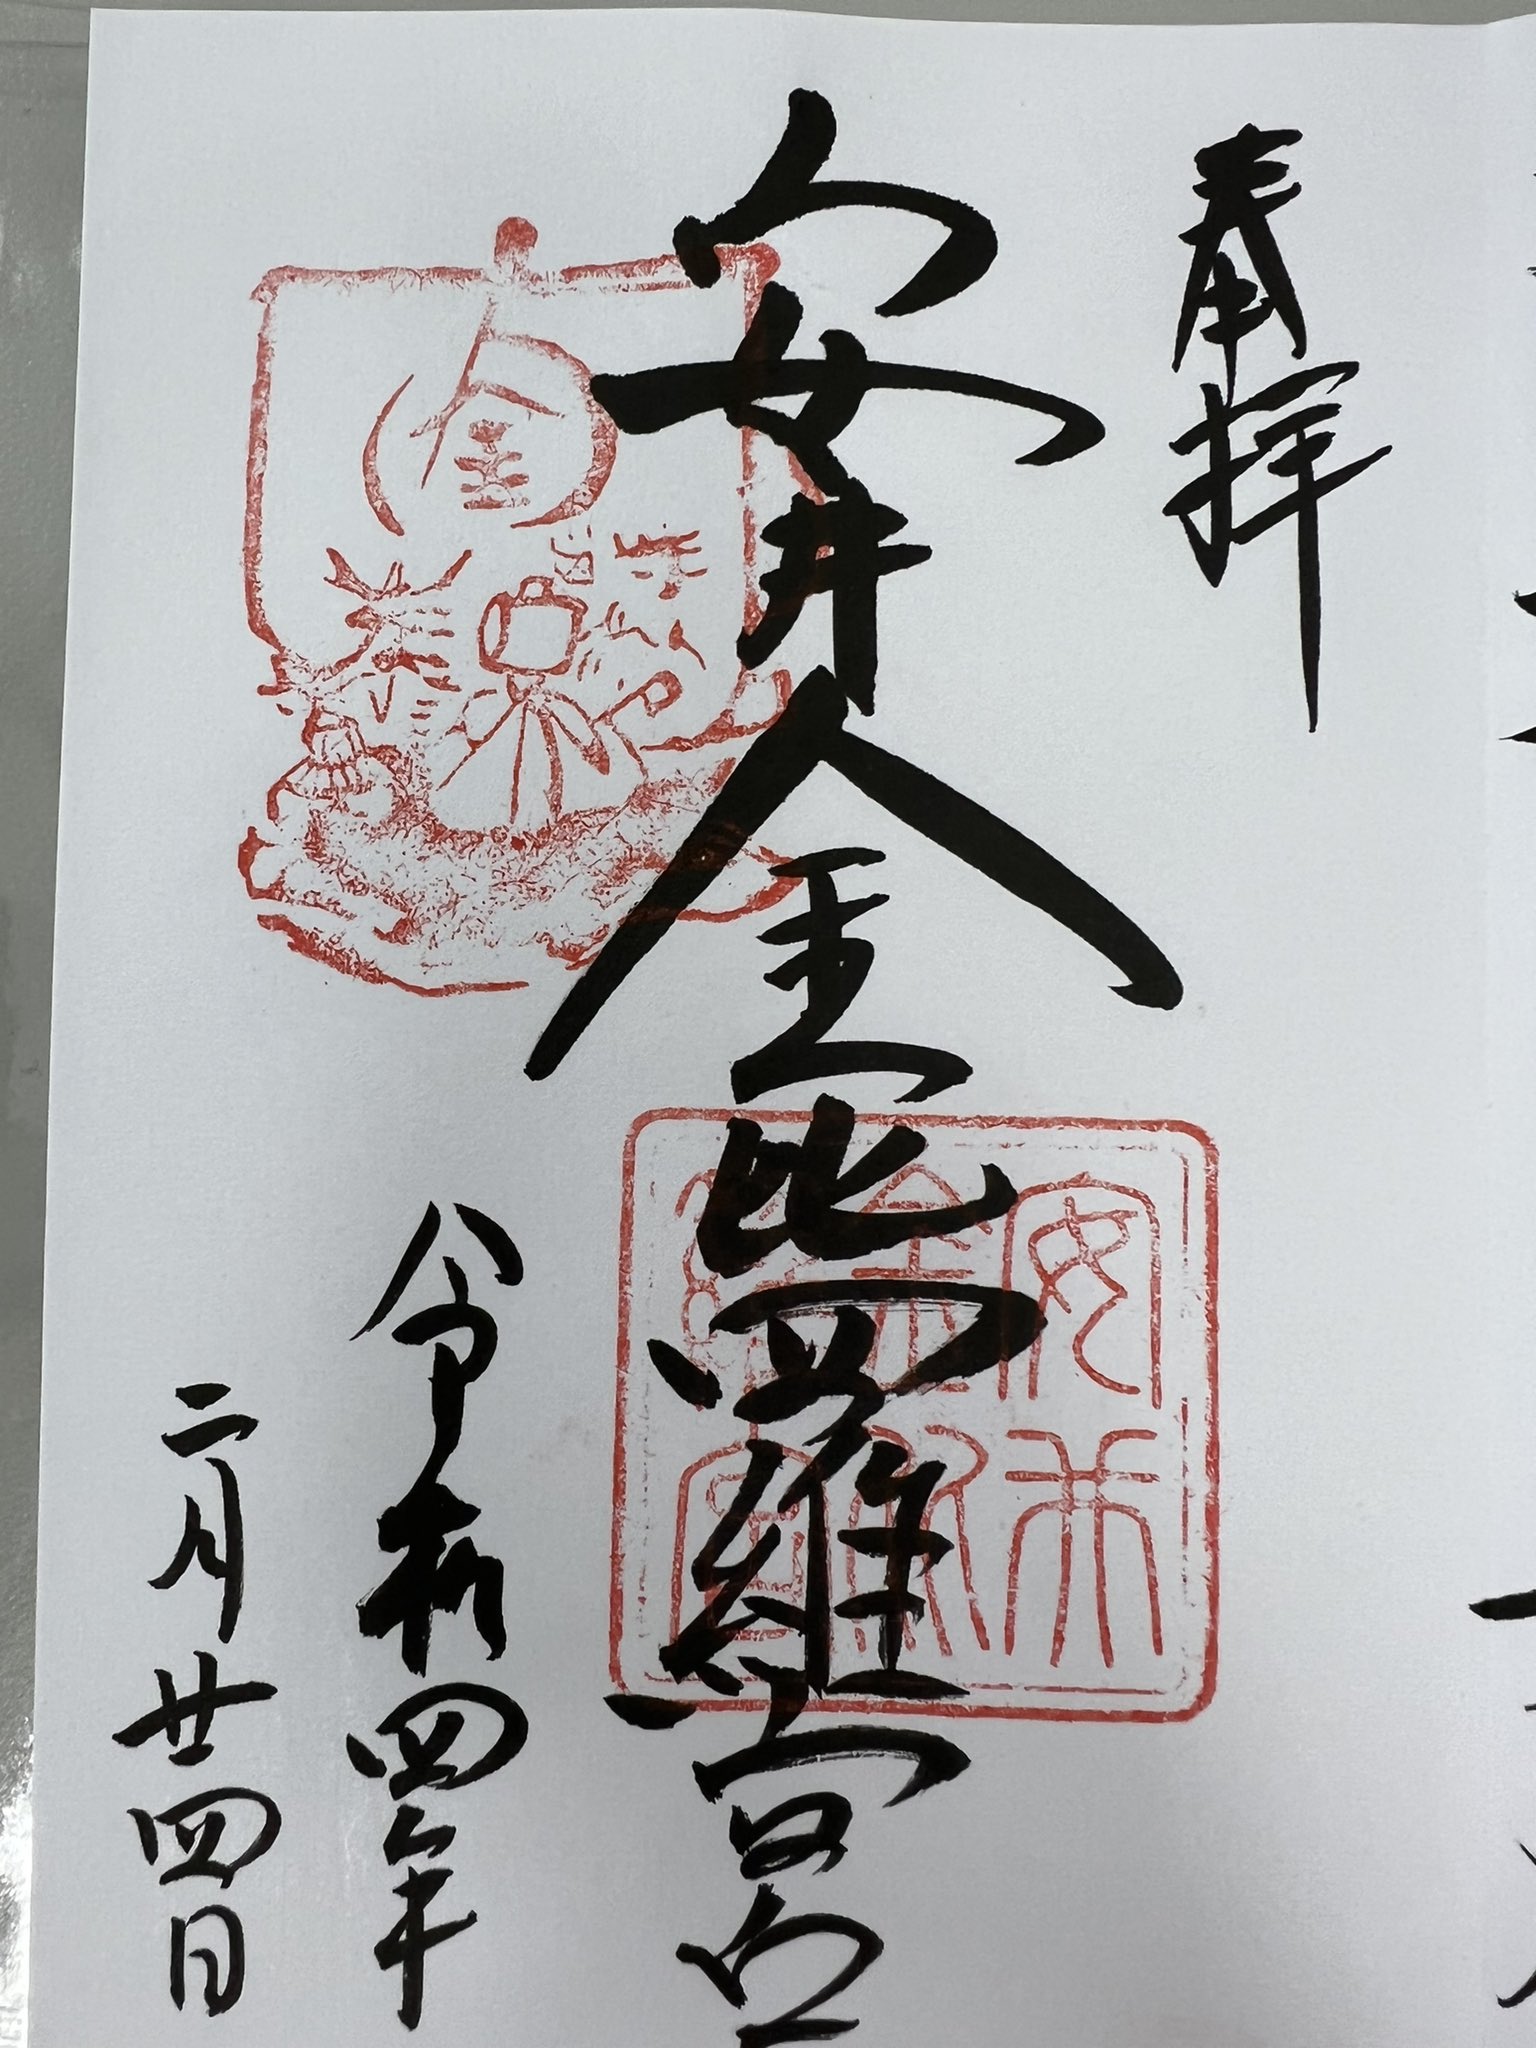 奉拝
安井金比羅宮
令和四年
二月廿四日